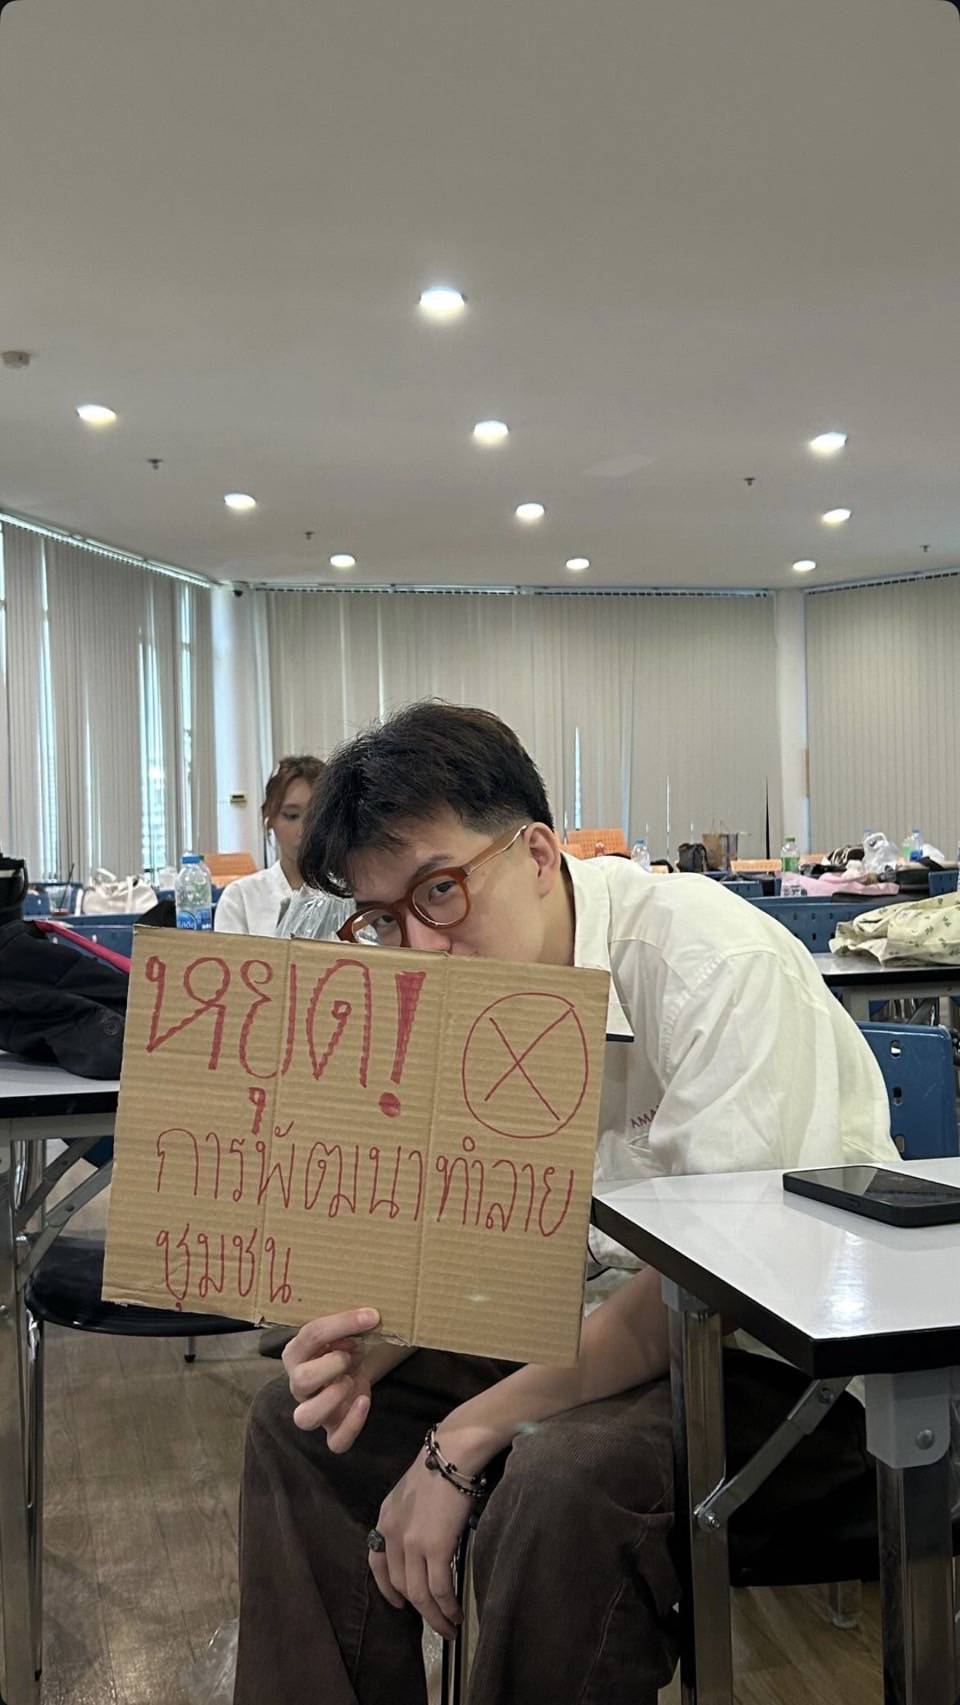 หยุด!
การพัฒนาทำลาย
ชุมชน.